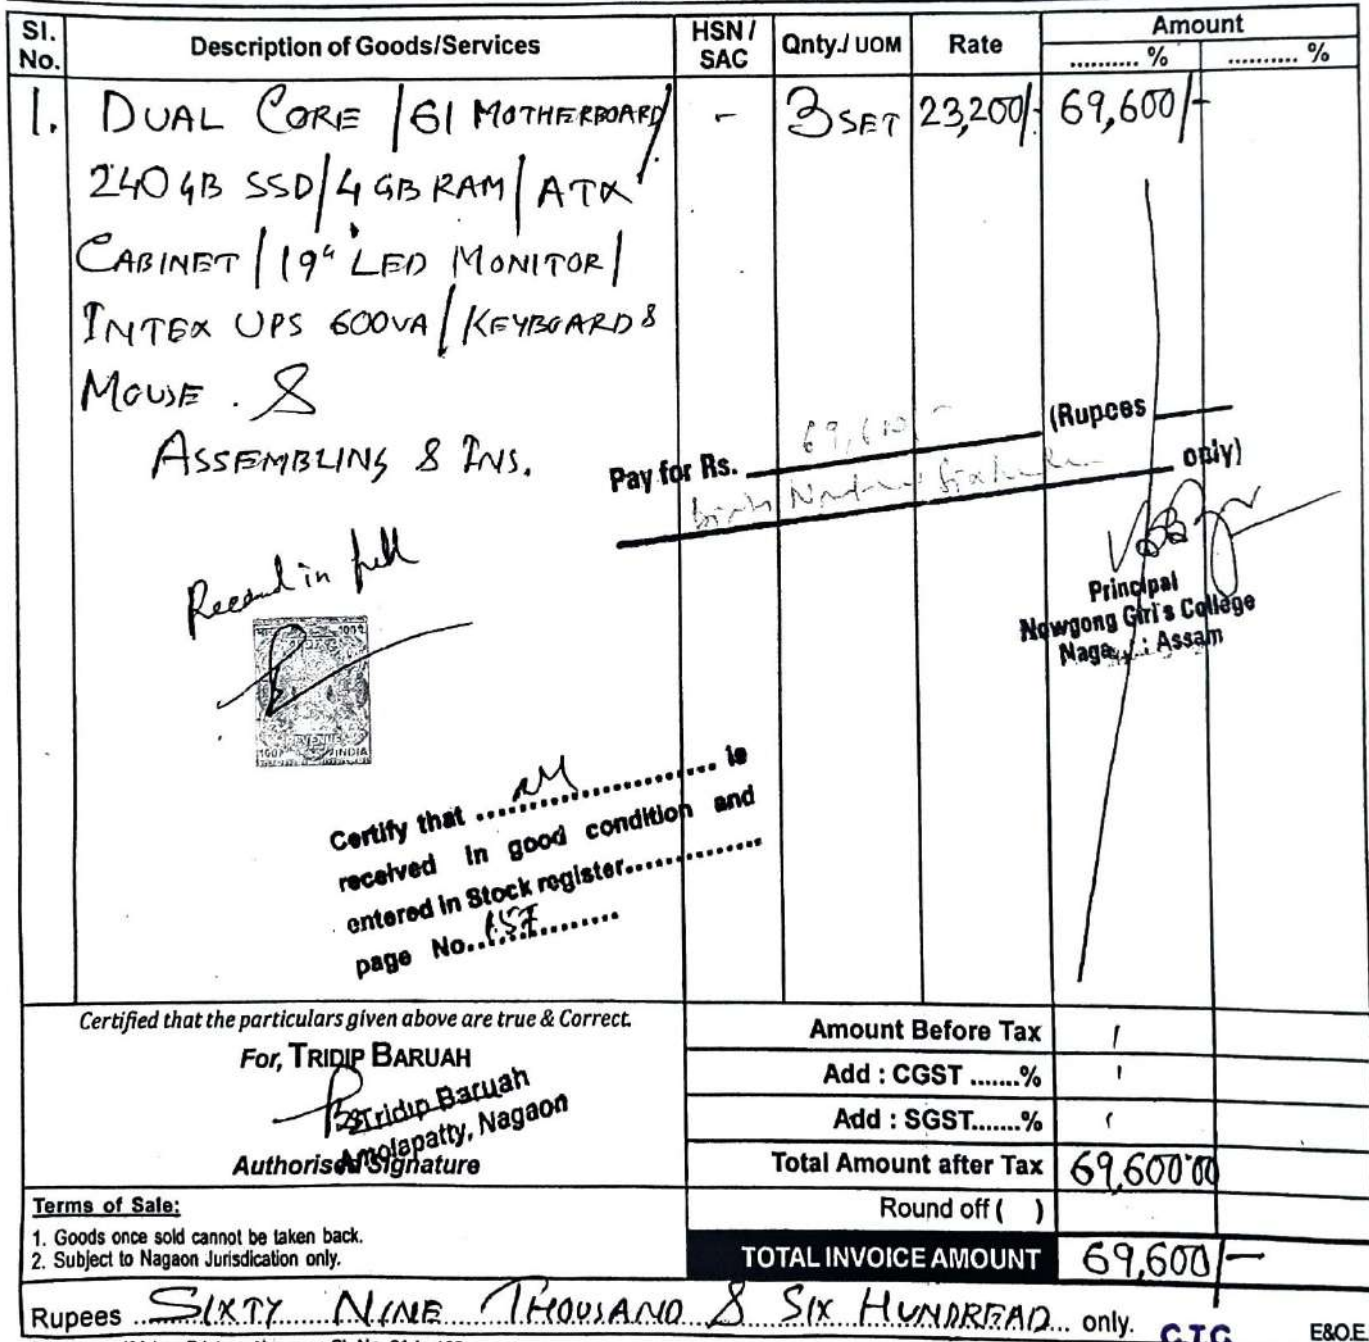 Sl. No. Description of Goods/Services HSN / SAC Qnty./ UOM Rate Amount
.......... % .......... %
1. DUAL CORE / 61 MOTHERBOARD/ - 3 SET 23,200/- 69,600/-
240 GB SSD/4 GB RAM/ATX
CABINET/19" LED MONITOR/
INTEX UPS 600VA/KEYBOARD &
MOUSE. &
ASSEMBLING & INS.
Pay for Rs. (Rupees
only)
in full
Principal
Nowgong Girl's College
Assam
REVENUE
INDIA
Certify that .................... is
received in good condition and
entered in Stock register...............
page No. 157
Certified that the particulars given above are true & Correct.
For, TRIDIP BARUAH
Tridip Baruah
Amolapatty, Nagaon
Authorised Signature
Amount Before Tax
Add : CGST .......%
Add : SGST.......%
Total Amount after Tax 69,600.00
Round off ( )
TOTAL INVOICE AMOUNT 69,600/-
Terms of Sale:
1. Goods once sold cannot be taken back.
2. Subject to Nagaon Jurisdication only.
Rupees SIXTY NINE THOUSAND & SIX HUNDREAD only.
E&O.E